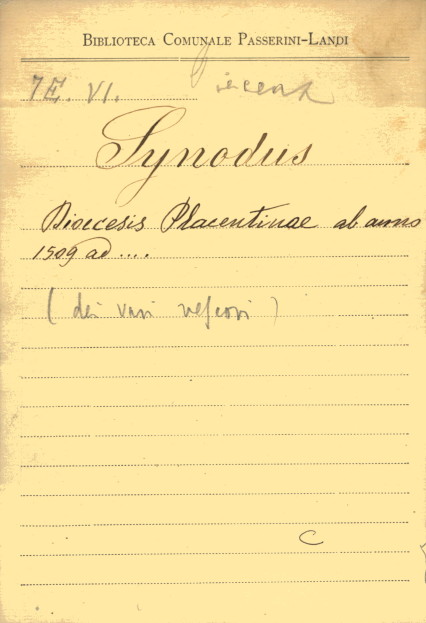 BIBLIOTECA COMUNALE PASSERINI-LANDI
7E. VI.
Synodus
Dioecesis Placentinae ab anno
1509 ad ....
( dei vari vescovi )
C